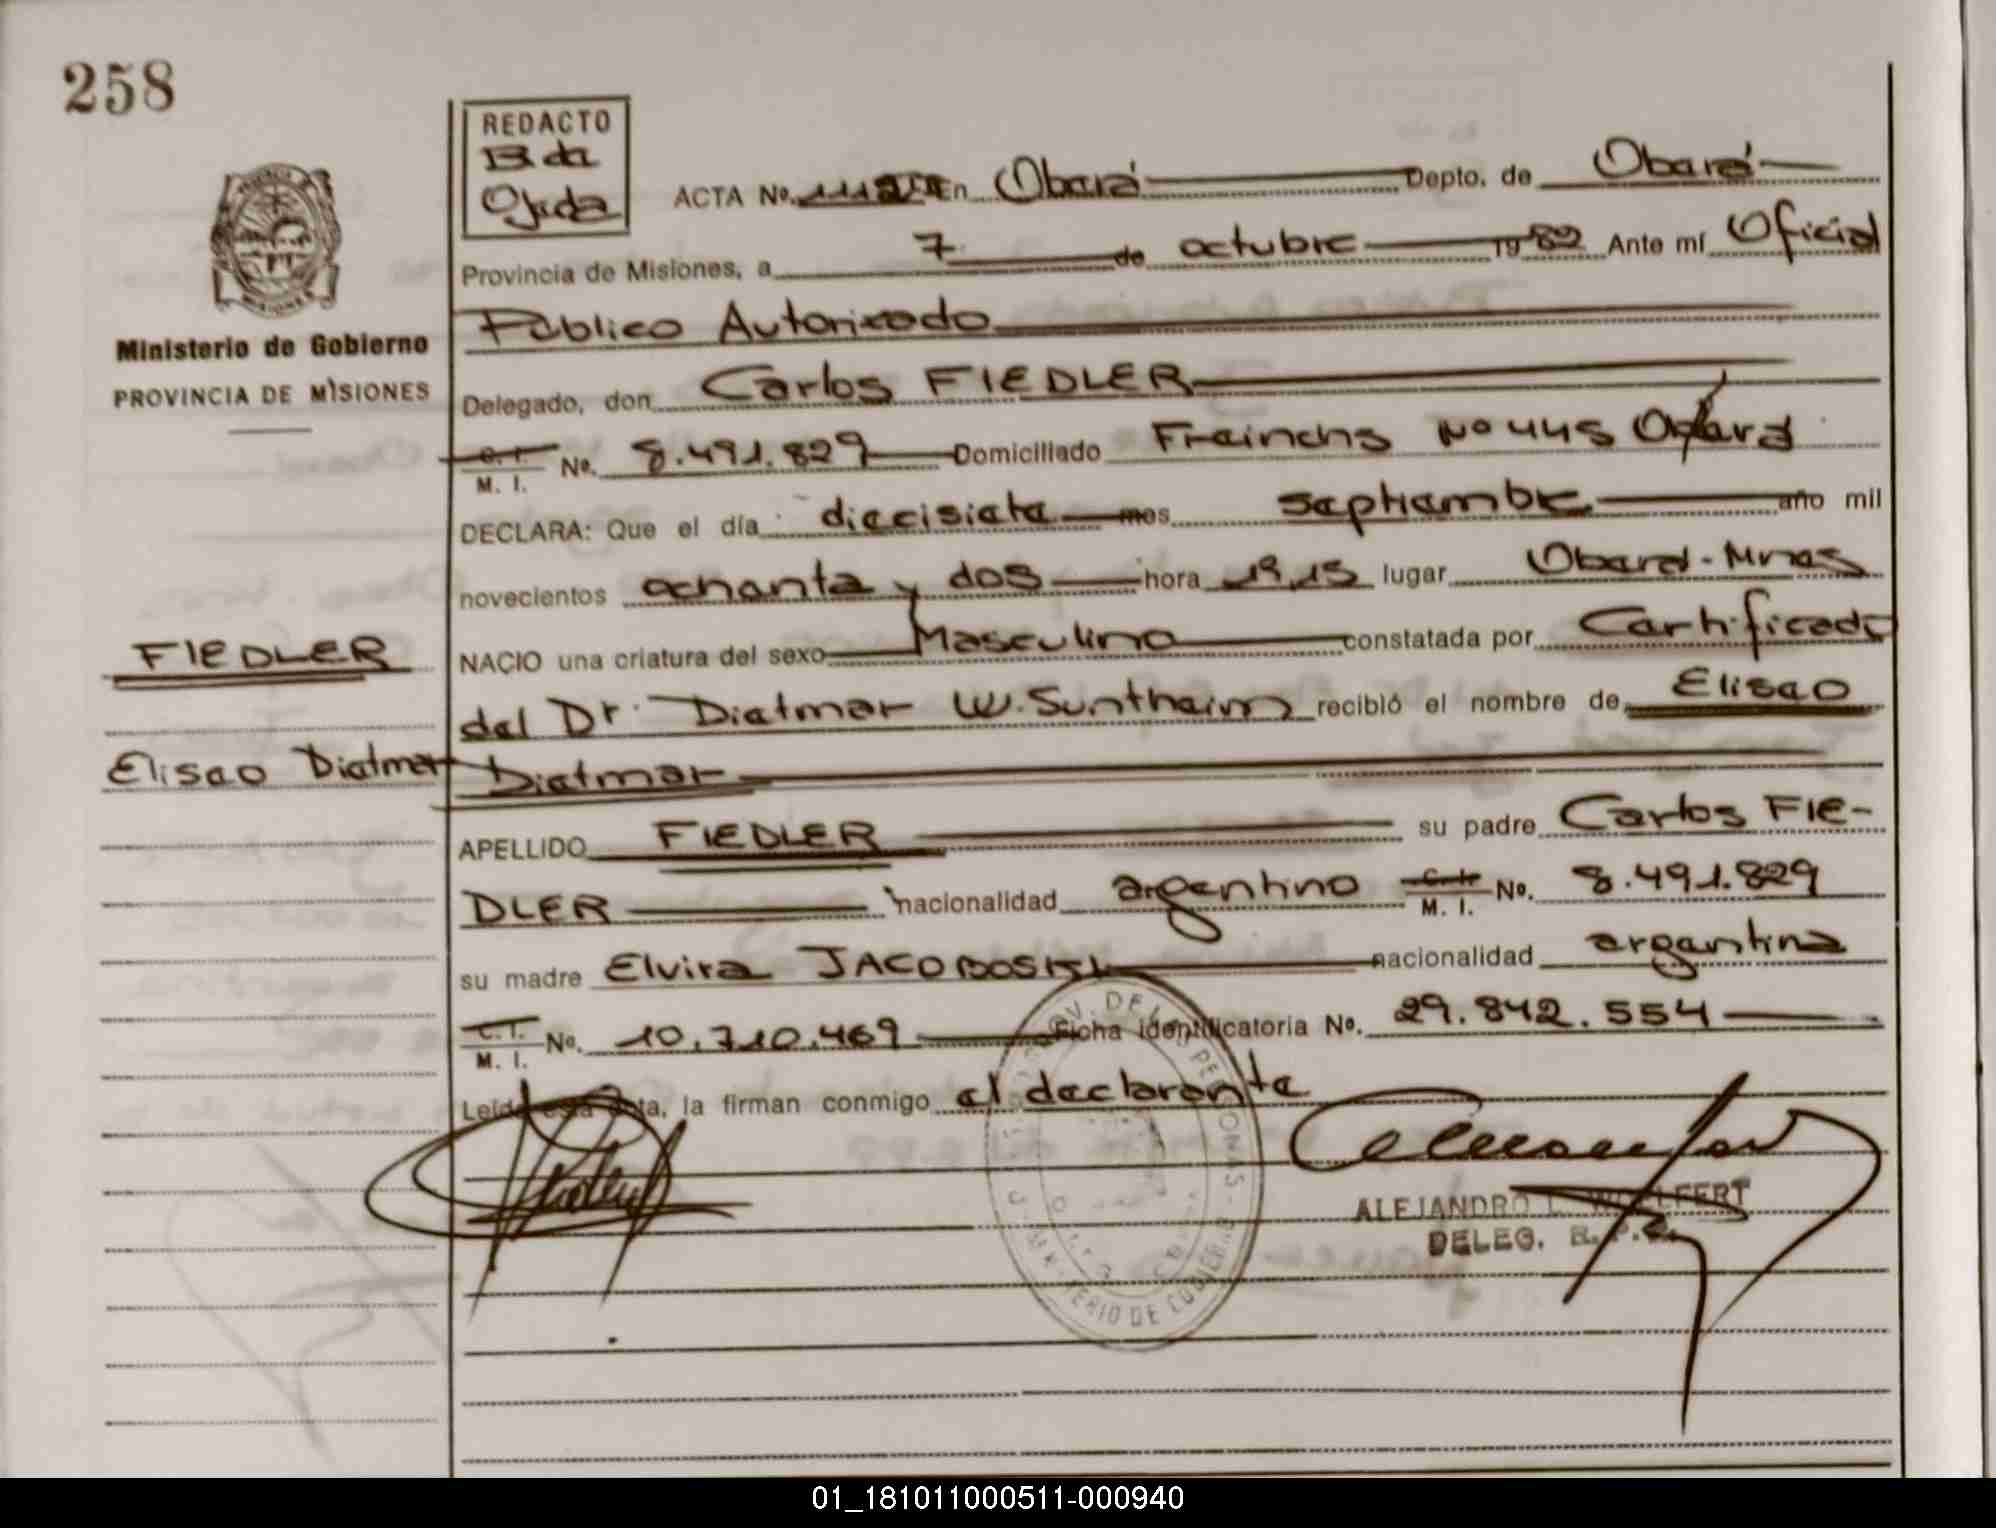 258
REDACTO
B da
Ojeda
ACTA Nº. En Oberá Depto. de Oberá
Provincia de Misiones, a 7 de octubre 1982 Ante mí Oficial
Ministerio de Gobierno
PROVINCIA DE MISIONES
Público Autorizado
Delegado, don Carlos FIEDLER
C. I. M. I. Nº. 8.491.829 Domiciliado Nº 445 Oberá
DECLARA: Que el día diecisiete mes septiembre año mil
novecientos ochenta y dos hora 19,15 lugar Oberá - Mnes
FIEDLER
NACIO una criatura del sexo Masculino constatada por Certificado
del Dr. Dietmar W. Suntheim recibió el nombre de Eliseo
Eliseo Dietmar
Dietmar
APELLIDO FIEDLER su padre Carlos FIE-
DLER nacionalidad argentino C. I. M. I. Nº. 8.491.829
su madre Elvira JACOBOSKI nacionalidad argentina
C. I. M. I. Nº. 10.710.469 Ficha identificatoria Nº. 29.842.554
Leída esta acta, la firman conmigo el declarante
ALEJANDRO L. WOLLFERT
DELEG. R. P.
MINISTERIO DE GOBIERNO
01_181011000511-000940